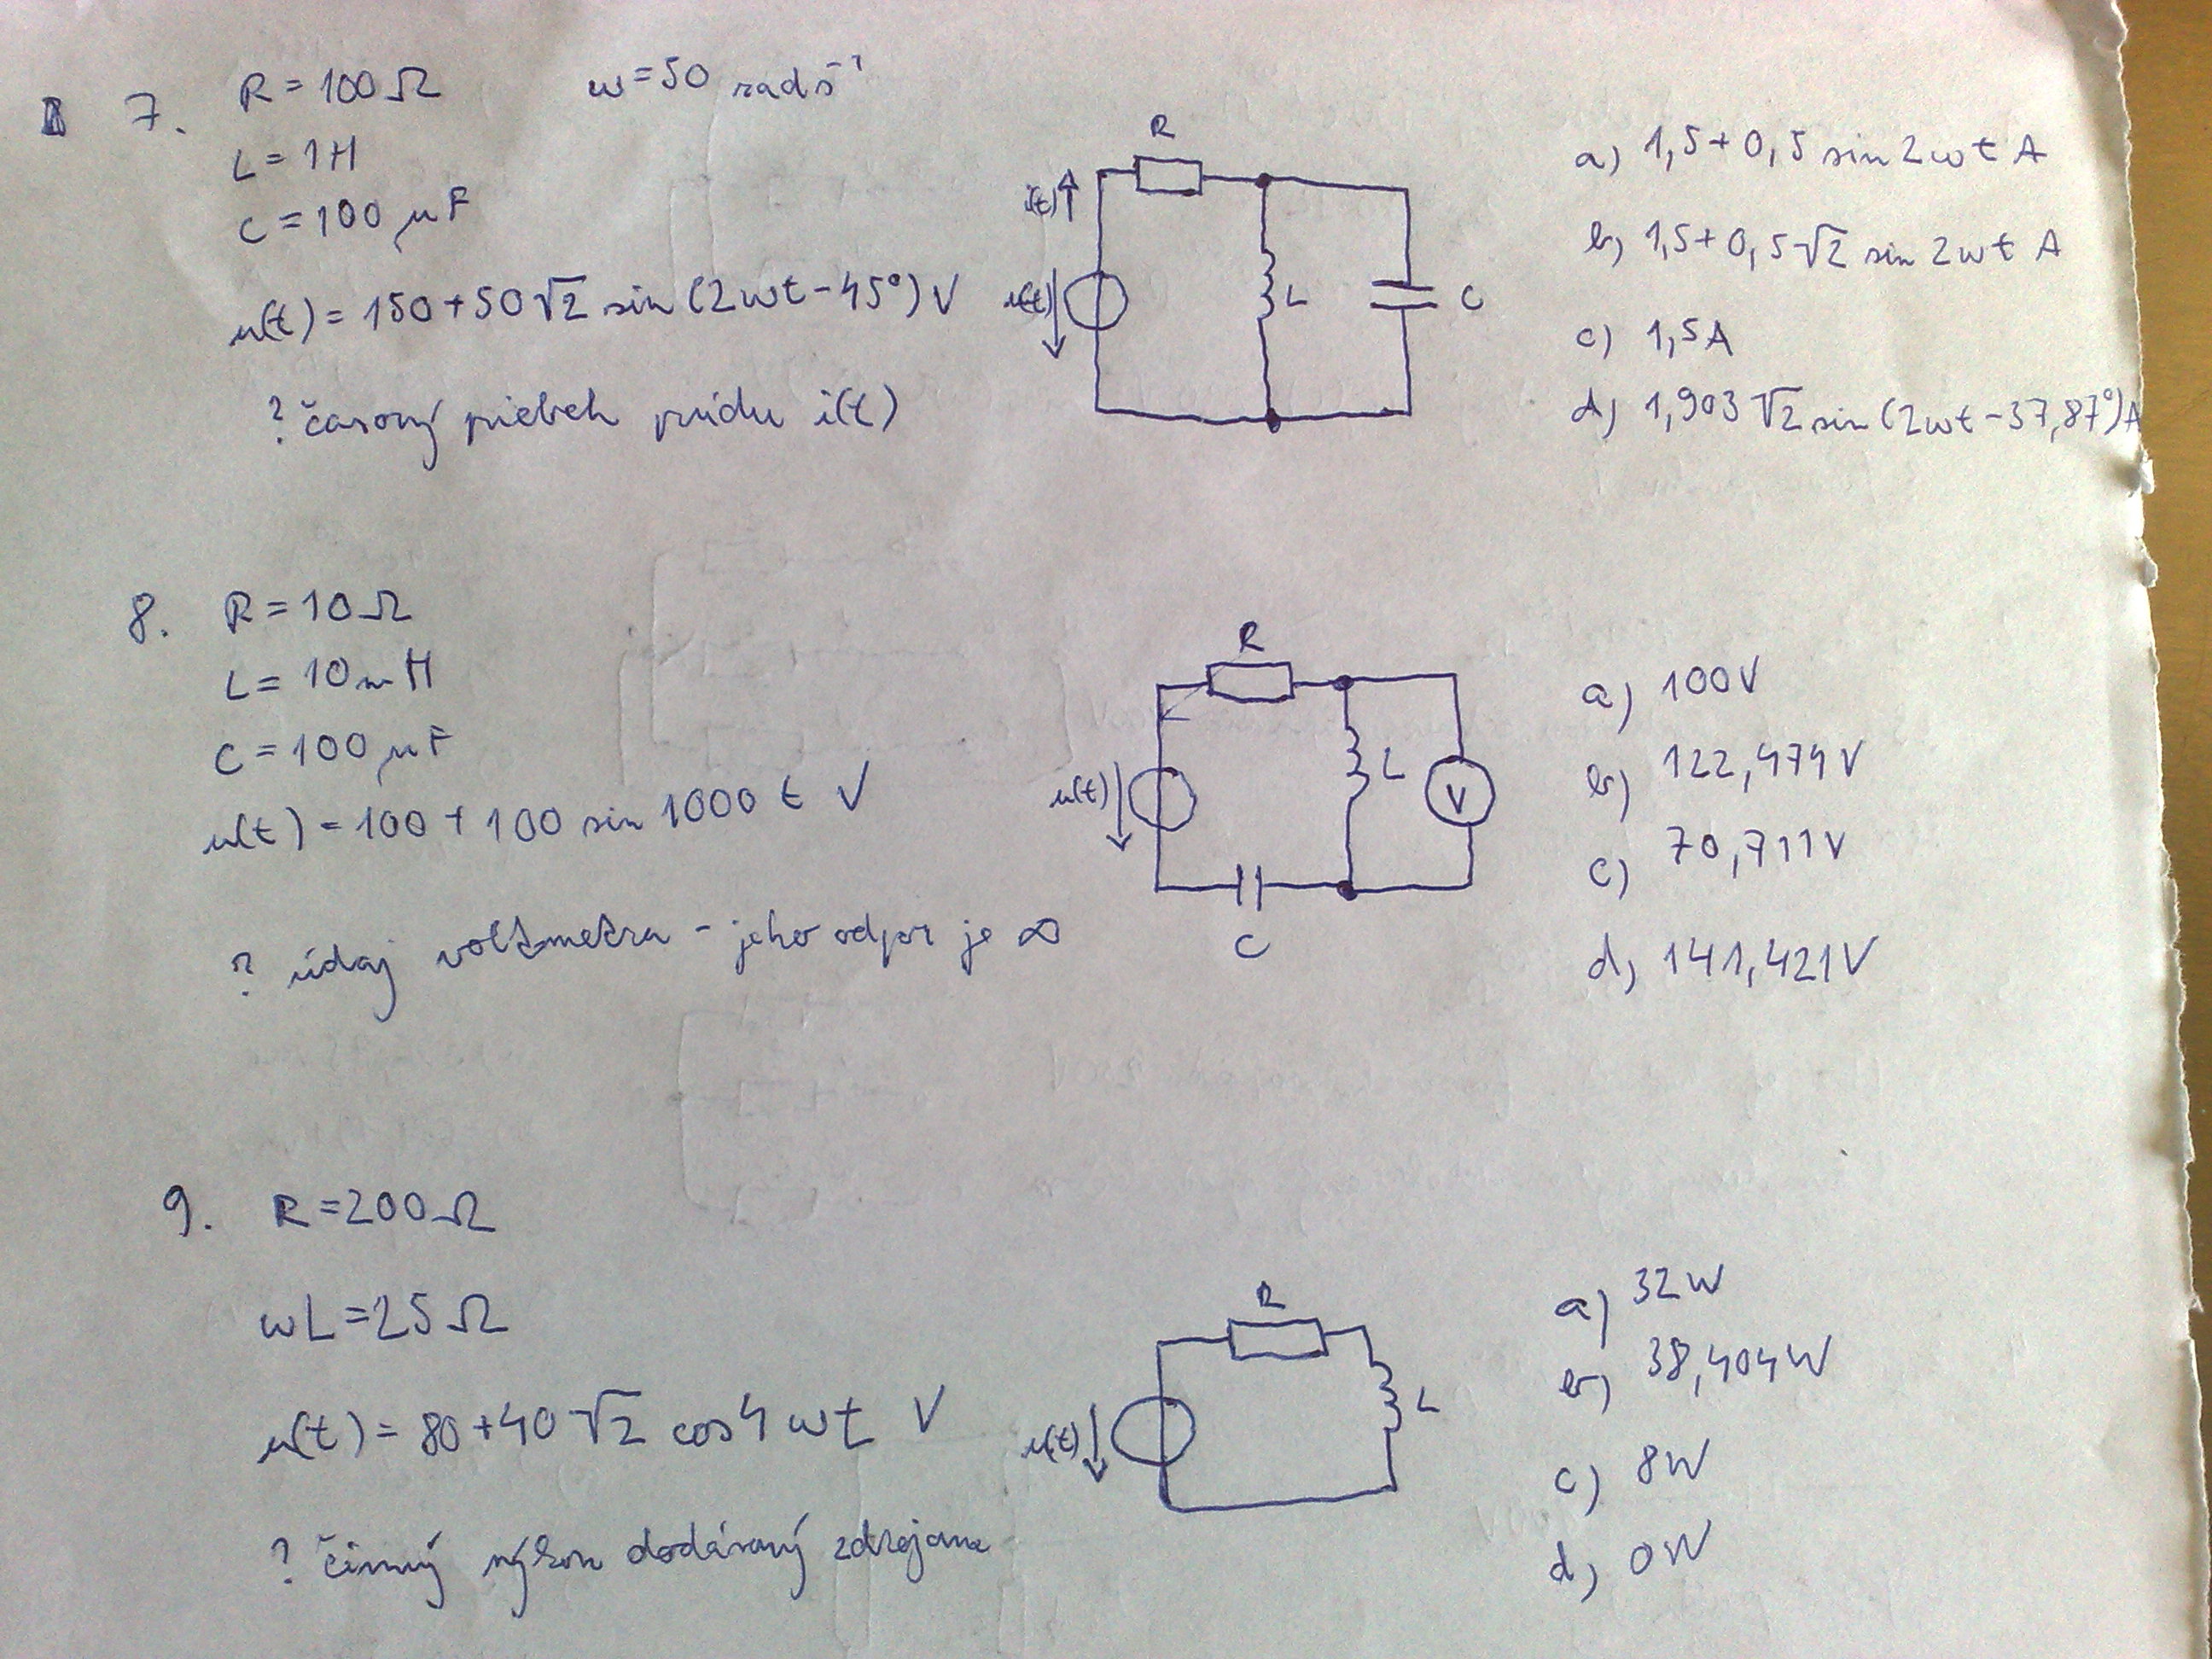 7. R = 100 Ω ω = 50 rad s⁻¹
L = 1H
C = 100 μF
u(t) = 150 + 50√2 sin (2ωt - 45°) V
? časový priebeh prúdu i(t)
R
i(t)
u(t)
L
C
a) 1,5 + 0,5 sin 2ωt A
b) 1,5 + 0,5√2 sin 2ωt A
c) 1,5A
d) 1,903 √2 sin (2ωt - 37,87°) A
8. R = 10 Ω
L = 10 mH
C = 100 μF
u(t) = 100 + 100 sin 1000 t V
? údaj voltmetra - jeho odpor je ∞
R
u(t)
L
V
C
a) 100V
b) 122,474V
c) 70,711V
d) 141,421V
9. R = 200 Ω
ωL = 25 Ω
u(t) = 80 + 40 √2 cos 4 ωt V
? činný výkon dodávaný zdrojom
R
u(t)
L
a) 32W
b) 38,404W
c) 8W
d) 0W